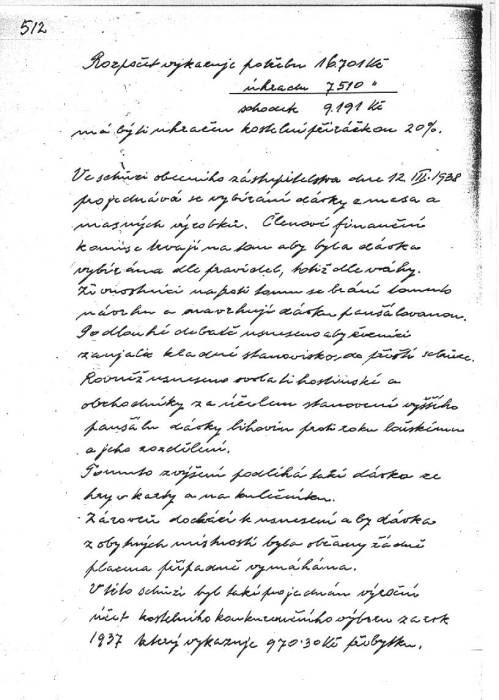 512
Rozpočet vykazuje potřebu 16.701 Kč
úhradu 7510 "
schodek 9.191 Kč
má býti uhrazen kostelní přirážkou 20%.
Ve schůzi obecního zastupitelstva dne 12 III. 1938
pojednává se vybírání dávky z masa a
masných výrobků. Členové finanční
komise trvají na tom aby byla dávka
vybírána dle pravidel, totiž dle váhy.
Živnostníci naproti tomu se brání tomuto
návrhu a navrhují dávku paušalovanou.
Po dlouhé debatě usneseno aby řezníci
zaujali kladné stanovisko, do příští schůze.
Rovněž usneseno svolati hostinské a
obchodníky za účelem stanovení vyššího
paušálu dávky lihovin proti roku loňskému
a jeho rozdělení.
Tomuto zvýšení podlíhá také dávka ze
hry v karty a na kulečníku.
Zároveň dochází k usnesení aby dávka
z obytných místností byla občany řádně
placena případně vymáhána.
V této schůzi byl také pojednán výroční
účet kostelního konkurenčního výboru za rok
1937 který vykazuje 970.30 Kč přebytku.